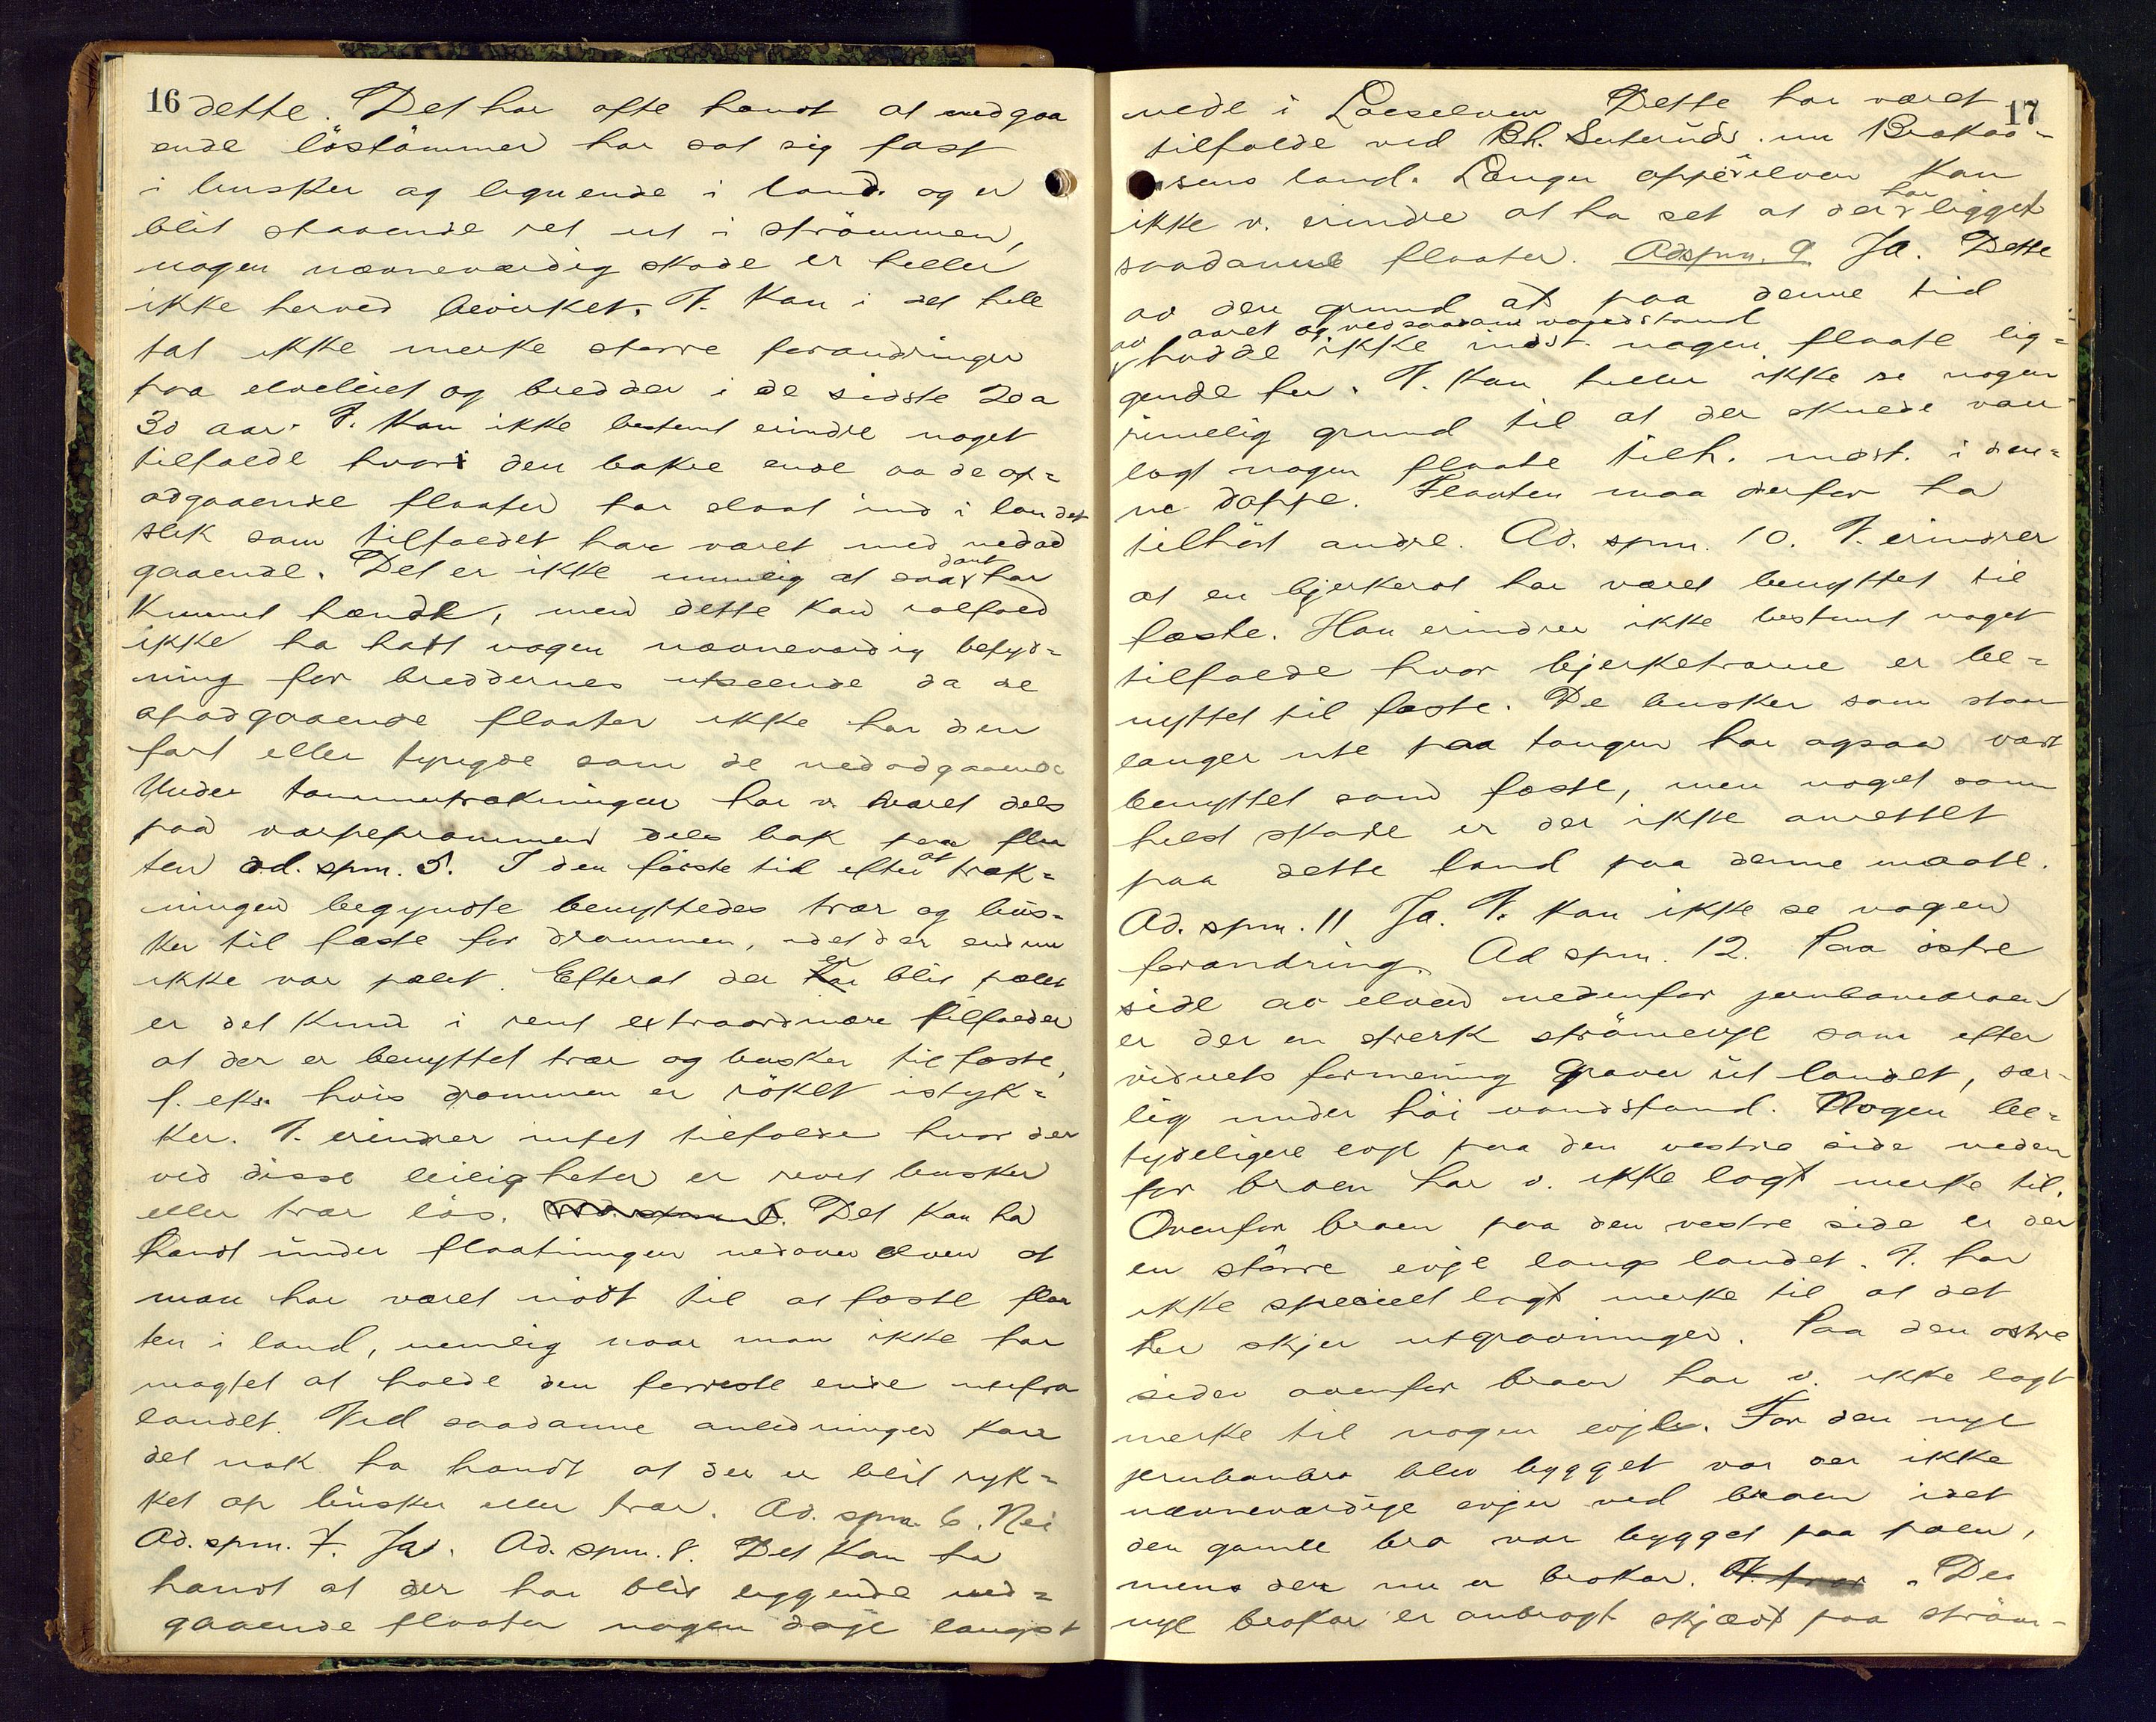 16 dette. Det har ofte hændt at nedgaa
ende löstömmer har sat sig fast
i busker og lignende i land. og er
blit staaende ret ut i strömmen,
nogen nævneværdig skade er heller
ikke herved bevirket. V. kan i det hele
tat ikke merke større forandringer
paa elveleiet og bredder i de sidste 20 a
30 aar. V. kan ikke bestemt erindre noget
tilfælde hvori den bakre ende av de op=
adgaaende flaater har slaat ind i landet
slik som tilfældet har været med nedad
gaaende. Det er ikke umulig at saadant har
kunnet hændt, men dette kan ialfald
ikke ha hatt nogen nævneværdig betyd=
ning for breddernes utseende da de
opadgaaende flaater ikke har den
fart eller tyngde som de nedadgaaende
Under tømmertrækningen har v. været dels
paa varpeprammen dels bak paa flaa
ten ad. spm. 5. I den første tid efter at træk=
ningen begyndte benyttedes trær og bus=
ker til fæste for drammen, idet der endnu
ikke var pælet. Efterat der er blit pælet
er det kun i rent extraordinære tilfælder
at der er benyttet trær og busker til fæste,
f. eks. hvis drammen er röket istyk=
ker. V. erindrer intet tilfælde hvor der
ved disse leiligheter er revet busker
eller trær løs. Det kan ha
hændt under flaatningen nedover elven at
man har været nödt til at fæste flaa
ten i land, nemlig naar man ikke har
magtet at holde den forreste ende utefra
landet. Ved saadanne anledninger kan
det nok ha hændt at der er blit ryk=
ket op busker eller trær. Ad. spm. 6. Nei
Ad. spm. 7. Ja. Ad. spm. 8. Det kan ha
hændt at der har blit liggende ned=
gaaende flaater nogen dage langst
17
nede i Loeselven Dette har været
tilfælde ved Bl. Seterüds nu
sens land. Længer oppe i elven kan
ikke v. erindre at ha set at der har ligget
saadanne flaater. Ad spm. 9 Ja. Dette
av den grund at paa denne tid
av aaret og ved saadan vandstand
hadde ikke indst. nogen flaate lig=
gende her. V. kan heller ikke se nogen
rimelig grund til at der skulde være
lagt nogen flaate tilh. indst. i den=
ne dappe. Flaaten maa derfor ha
tilhört andre. Ad. spm. 10. V. erindrer
at en bjerkerot har været benyttet til
fæste. Han erindrer ikke bestemt noget
tilfælde hvor bjerketrærne er be=
nyttet til fæste. De busker som staar
længer ute paa tangen har ogsaa vært
benyttet som fæste, men noget som
helst skade er der ikke anrettet
paa dette land paa denne maate.
Ad. spm. 11 Ja. V. kan ikke se nogen
forandring. Ad spm. 12. Paa östre
side av elven nedenfor jernbanebroen
er der en sterk strömevje som efter
vidnets formening graver üt landet, sær=
lig under höi vandstand. Nogen be=
tydeligere evje paa den vestre side neden
for broen har v. ikke lagt merke til.
Ovenfor broen paa den vestre side er der
en större evje langs landet. V. har
ikke specielt lagt merke til at det
her skjer utgravninger. Paa den østre
siden ovenfor broen har v. ikke lagt
merke til nogen evje. Før den nye
jernbanebro blev bygget var der ikke
nævneværdige evjer ved broen idet
den gamle bro var bygget paa pæler,
mens der nu er brokar. V. tror. De
nye brokar er anbragt skjævt paa ström=